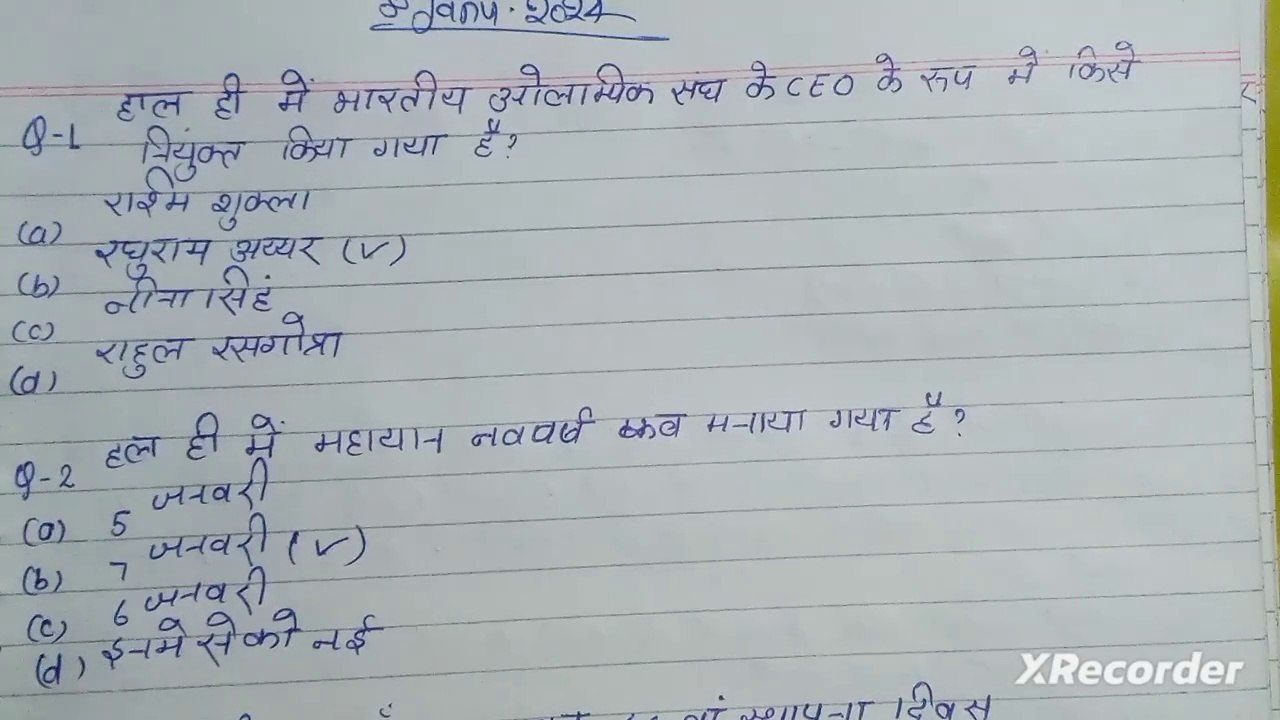 8 Janu. 2024
Q-1 हाल ही में भारतीय ओलाम्पिक संघ के CEO के रूप में किसे
नियुंक्त किया गया है?
(a) राश्मि शुक्ला
(b) रघुराम अय्यर (✓)
(c) नीना सिहं
(d) राहुल रसगोत्रा
Q-2 हल ही में महायान नववर्ष कब मनाया गया है?
(a) 5 जनवरी
(b) 7 जनवरी (✓)
(c) 6 जनवरी
(d) इनमे से को नई
स्थापना दिवस
XRecorder